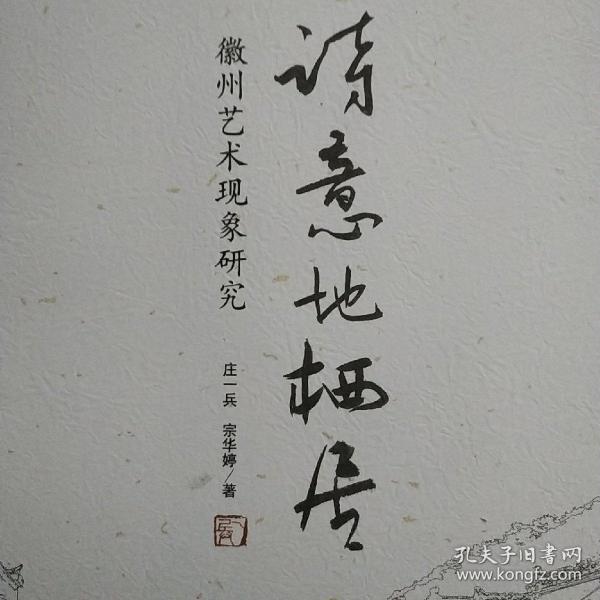 诗意地栖居
徽州艺术现象研究
庄一兵 宗华婷/著
孔夫子旧书网
www.kongfz.com